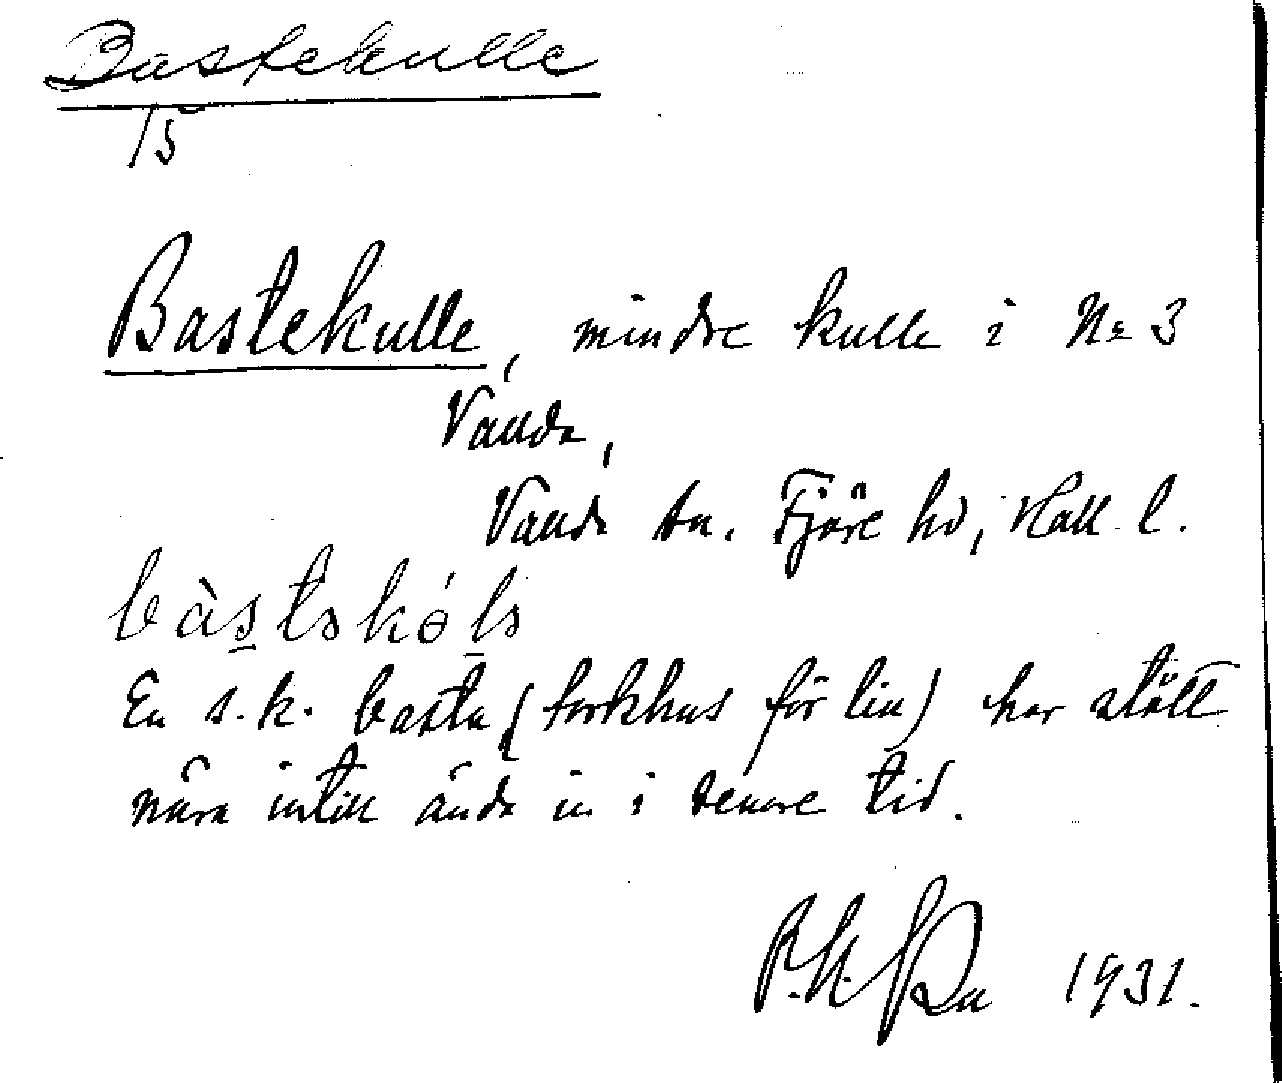 Bastekulle
15
Bastekulle, mindre kulle i No 3
Vallda,
Vallda sn. Fjäre hd, Hall. l.
En s.k. basta (torkhus för lin) har stått
nära intill ända in i senare tid.
1931.